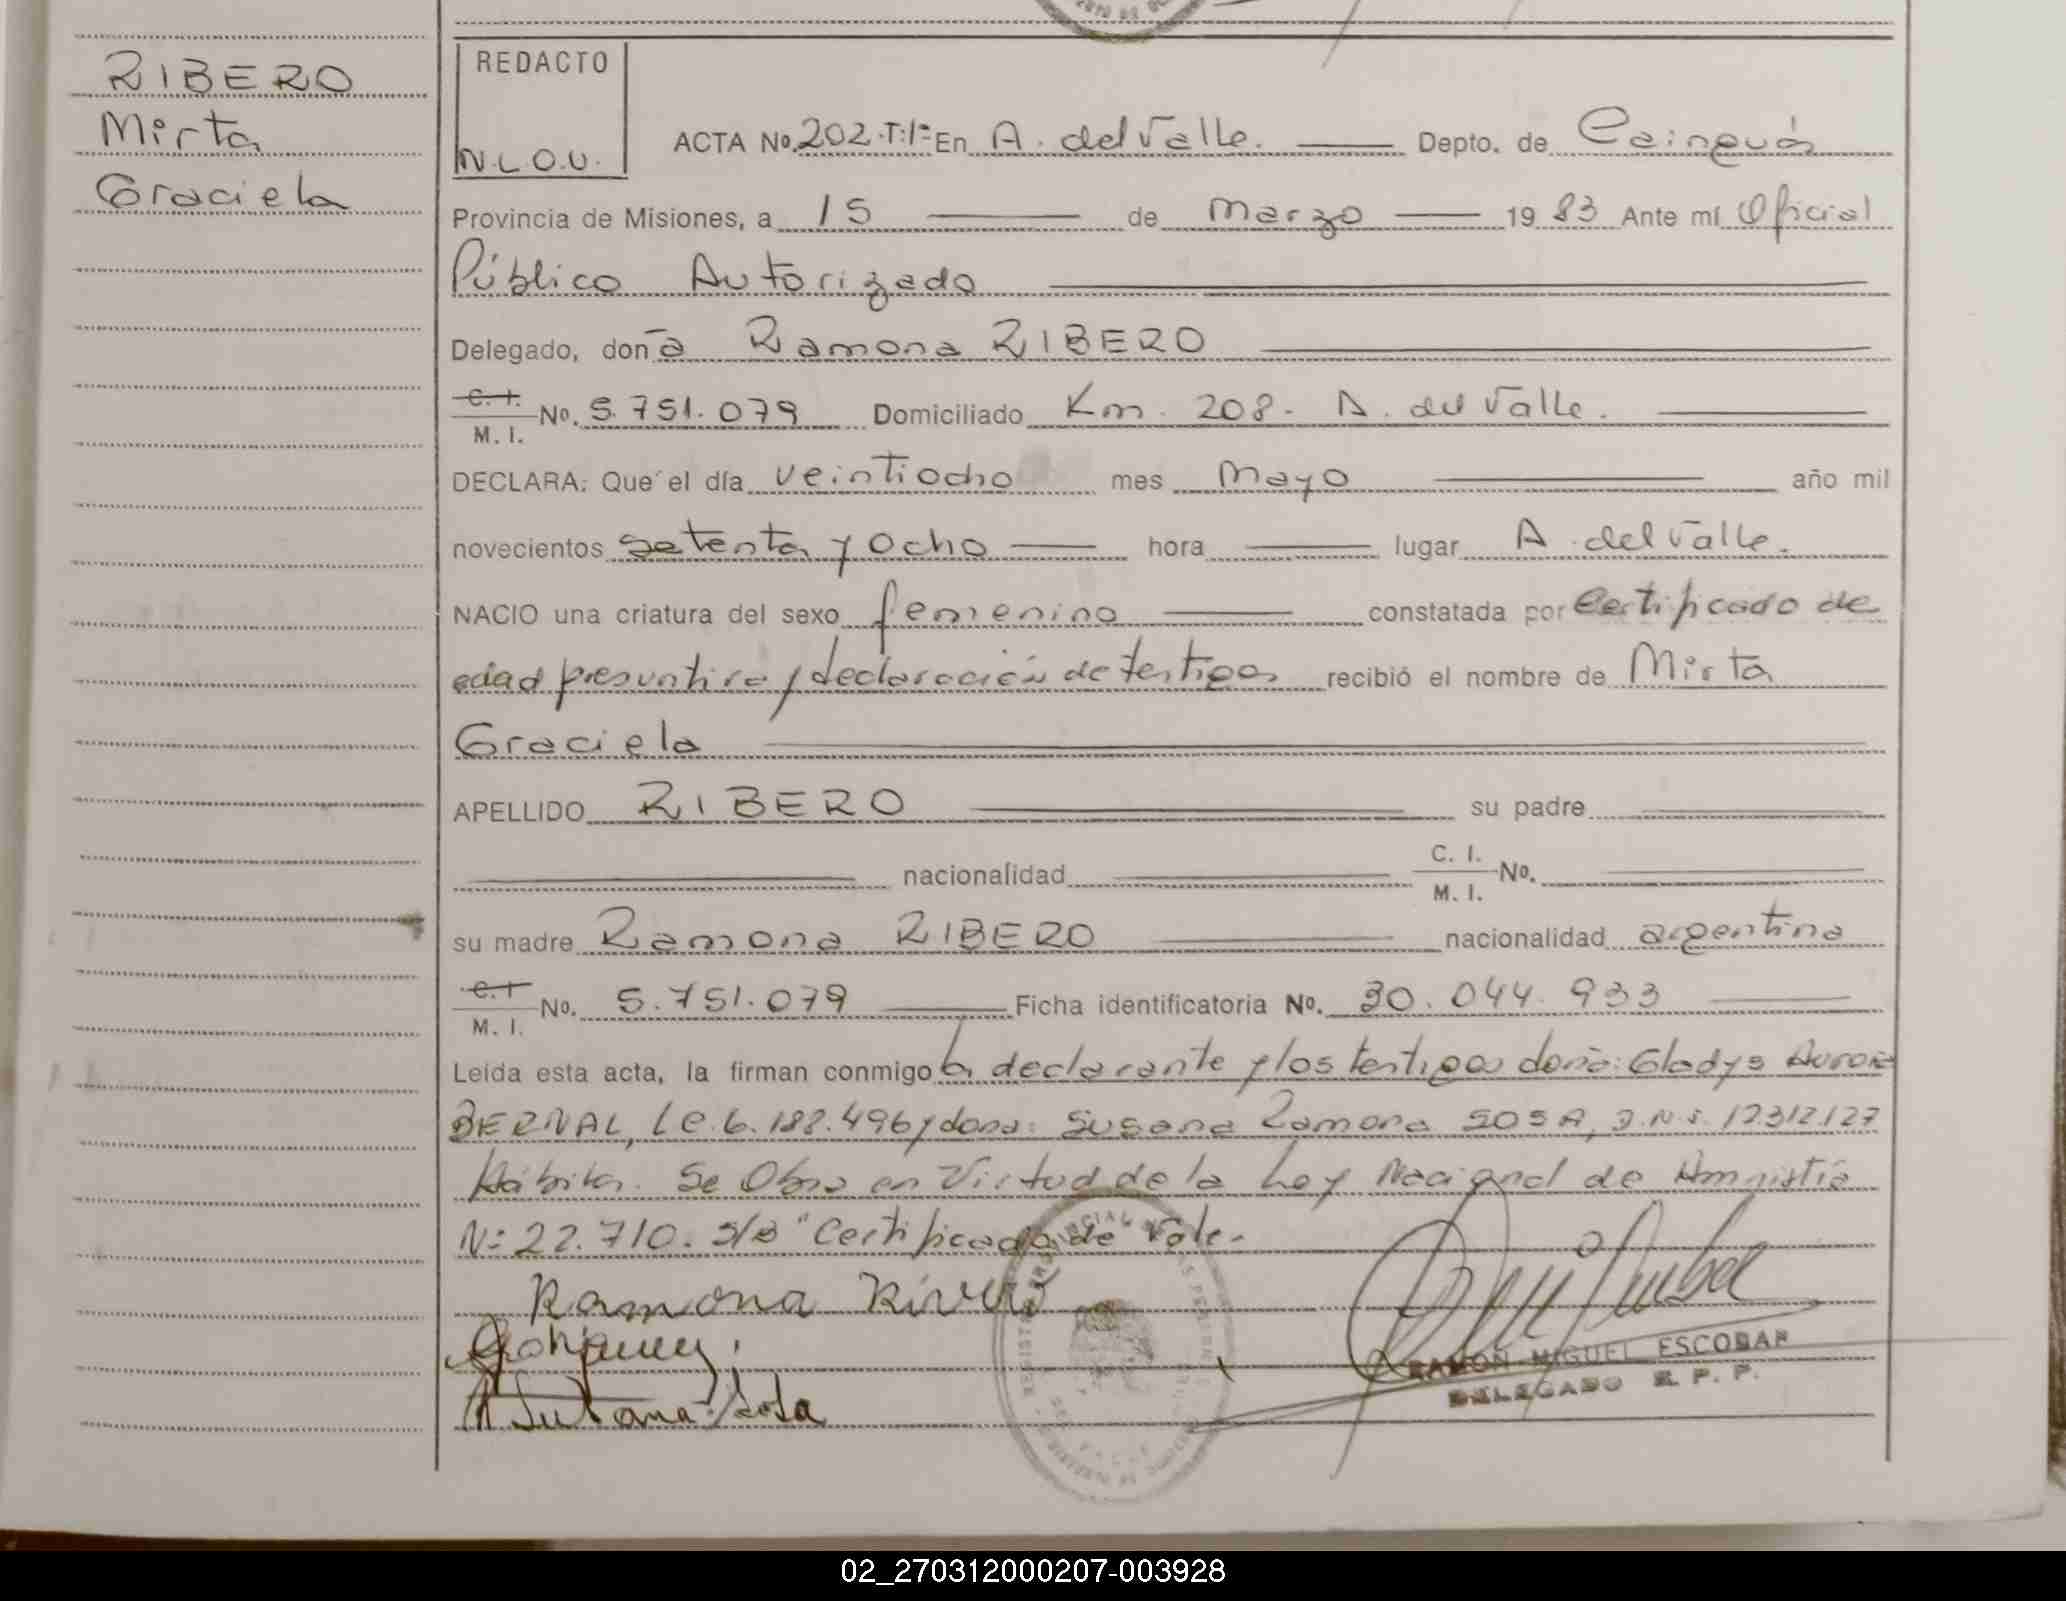 RIBERO
Mirta
Graciela
REDACTO
N.L.O.U.
ACTA No. 202.T:1º En A. del Valle. Depto. de Cainguás
Provincia de Misiones, a 15 de Marzo 1983 Ante mí Oficial
Público Autorizado
Delegado, doña Ramona RIBERO
C. I. M. I. No. 5.751.079 Domiciliado Km. 208. A. del Valle.
DECLARA: Que el día veintiocho mes Mayo año mil
novecientos setenta y ocho hora lugar A. del Valle.
NACIO una criatura del sexo femenino constatada por Certificado de
edad presuntiva y declaración de testigos recibió el nombre de Mirta
Graciela
APELLIDO RIBERO su padre
nacionalidad C. I. M. I. No.
su madre Ramona RIBERO nacionalidad argentina
C. I. M. I. No. 5.751.079 Ficha identificatoria No. 30.044.933
Leida esta acta, la firman conmigo la declarante y los testigos doña: Gladys Aurora
BERNAL, L.C. 6.188.496 y doña: Susana Ramona SOSA, D.N.I. 12.312.127
Hábiles. Se Obra en Virtud de la Ley Nacional de Amnistía
Nº 22.710. S/B "Certificado de Vale.
Ramona Rivero
Susana Sosa
RAMON MIGUEL ESCOBAR
DELEGADO R. P. P.
02_270312000207-003928